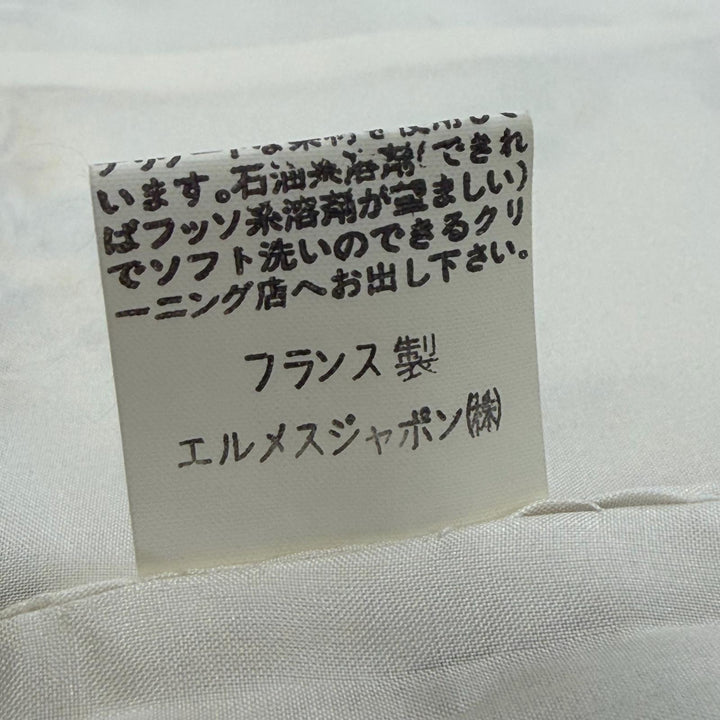 デリケートな素材を使用して
います。石油系溶剤(できれ
ばフッソ系溶剤が望ましい)
でソフト洗いのできるクリ
ーニング店へお出し下さい。
フランス製
エルメスジャポン㈱